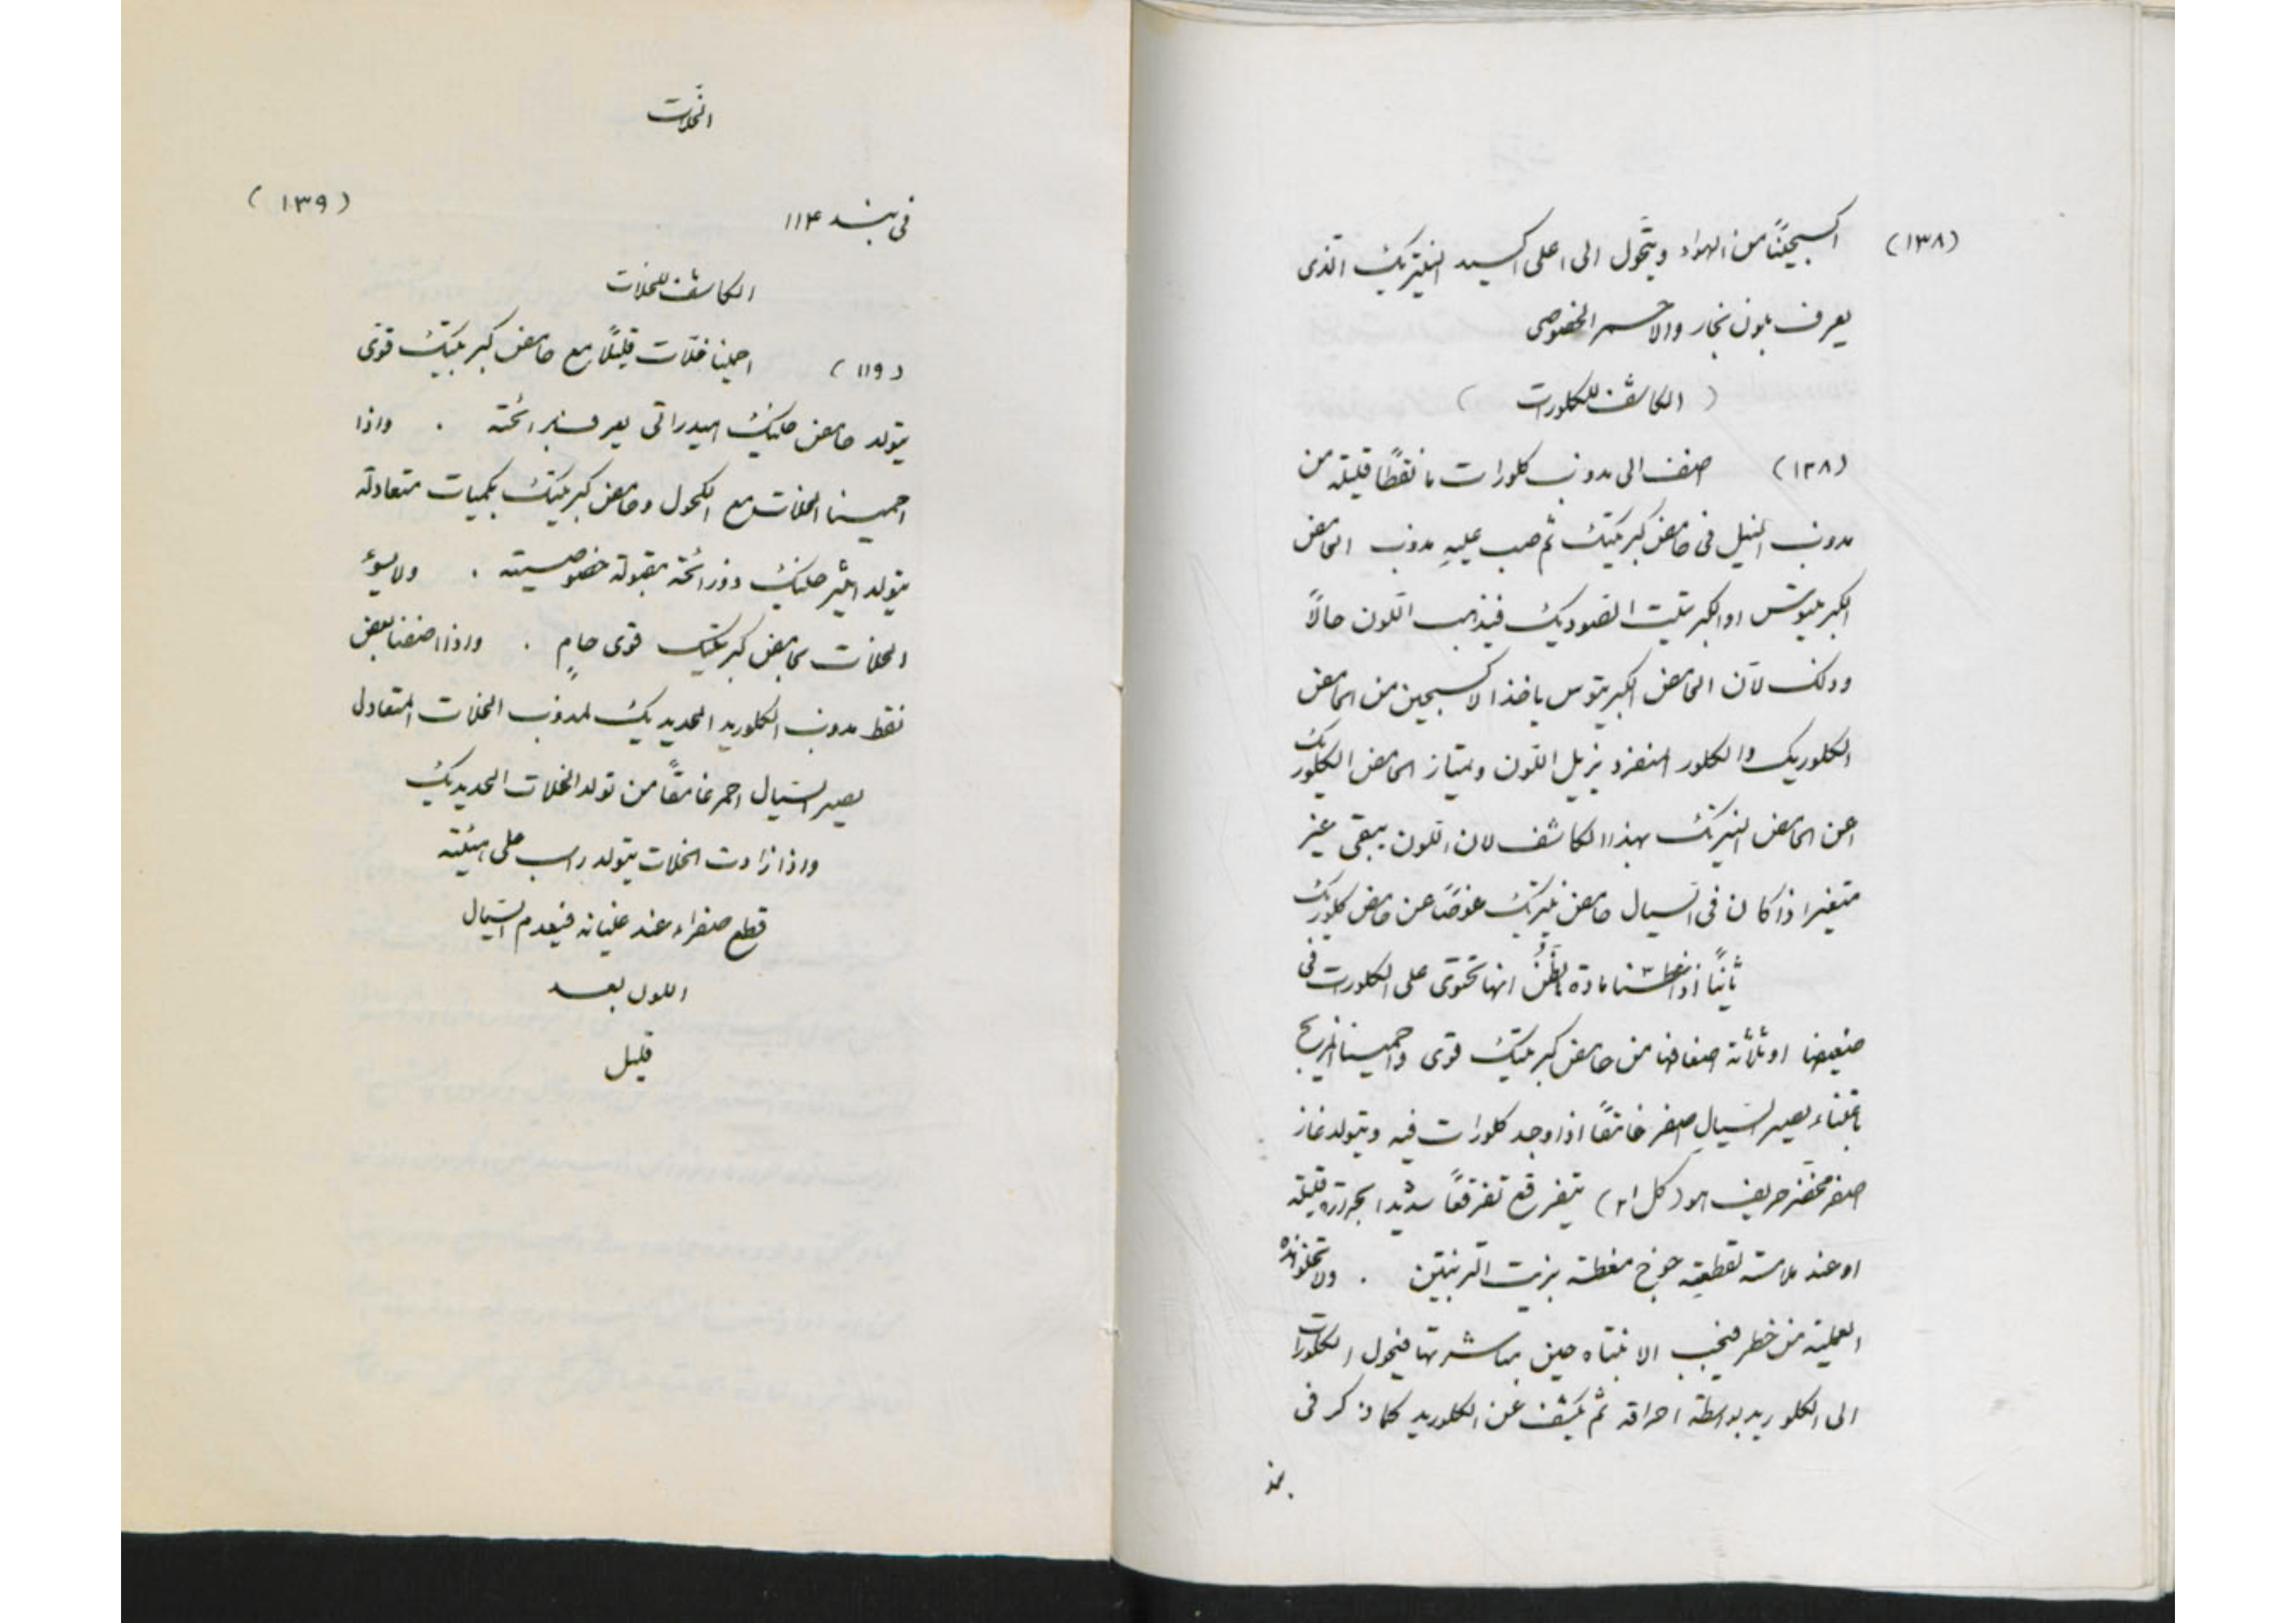 (١٣٨)
اكسجينًا من الهواء ويتحول الى اعلى اكسيد النيتريك الذى
يعرف بلون بخار والاحمر الخصوصى
( الكاشف للكلورات )
(١٣٨) اضف الى مذوب كلورات ما نقطًا قليلة من
مذوب النيل فى حامض كبريتيك ثم صب عليه مذوب الحامض
الكبريتوس او الكبريتيت الصوديك فيذهب اللون حالًا
وذلك لان الحامض الكبريتوس ياخذ الاكسجين من الحامض
الكلوريك والكلور المنفرد يزيل اللون ويمتاز الحامض الكلوريك
عن الحامض النيتريك بهذا الكاشف لان اللون يبقى غير
متغير اذا كان فى السيال حامض نيتريك عوضًا عن حامض كلوريك
ثانيًا اذا مادة يظن انها تحتوى على الكلورات فى
ضعيفها او ثلاثة اضعافها من حامض كبريتيك قوى واحمينا المزيج
باعتناء يصير السيال اصفر غامقًا اذا وجد كلورات فيه ويتولد غاز
اصفر مخضر حريف هو (كل ا٢) يتفرقع تفرقعًا شديدا بحرارة قليلة
او عند ملامسته لقطعة جوخ مغطة بزيت التربنتين . ولا تخلو هذه
العملية من خطر فيجب الانتباه حين مباشرتها فيحول الكلورات
الى الكلوريد بواسطة احراقه ثم يكشف عن الكلوريد كما ذكر فى
بند
الخلات
(١٣٩)
فى بند ١١٤
الكاشف للخلات
(١١٩) احمينا خلات قليلًا مع حامض كبريتيك قوى
يتولد حامض خليك هيدراتى يعرف برائحته . واذا
احمينا الخلات مع الكحول وحامض كبريتيك بكميات متعادلة
يتولد ايثر خليك ذو رائحة مقبولة خصوصية . ولا يسوء
الخلات بحامض كبريتيك قوى حامٍ . واذا اضفنا بعض
نقط مذوب الكلوريد الحديديك لمذوب الخلات المتعادل
يصير السيال احمر غامقًا من تولد الخلات الحديديك
واذا زادت الخلات يتولد راسب على هيئة
قطع صفراء عند غليانه فيعدم السيال
اللون بعد
قليل